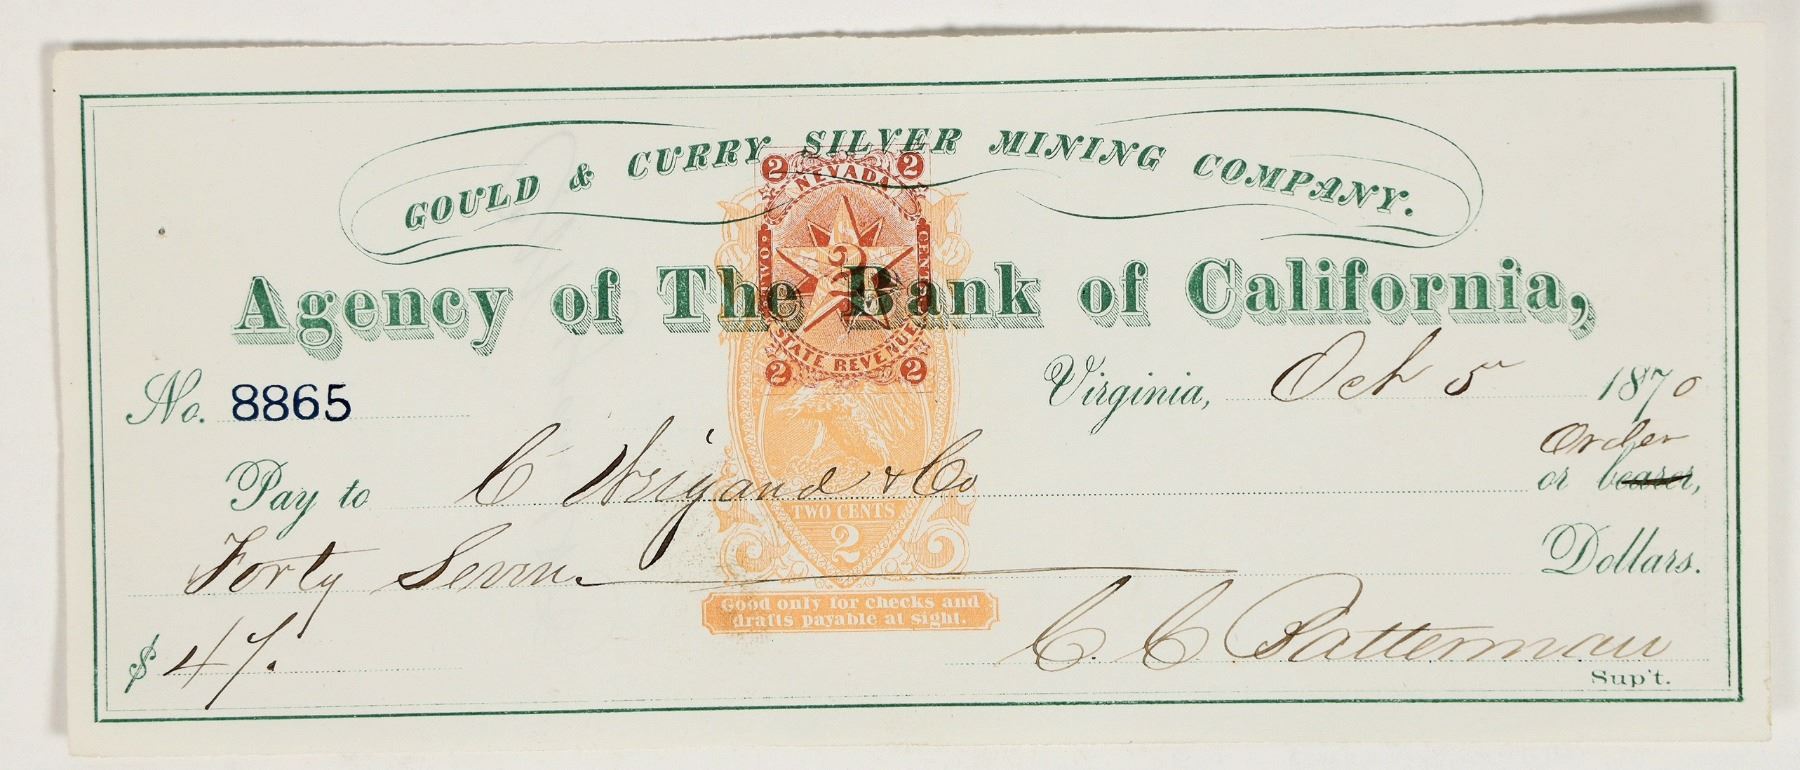 GOULD & CURRY SILVER MINING COMPANY.
2 NEVADA 2
TWO CENTS
2
STATE REVENUE
2 2
Agency of The Bank of California,
No. 8865 Virginia, Oct 5 1870
Order
Pay to C Weigand & Co or bearer,
TWO CENTS
2
Forty Seven Dollars.
Good only for checks and
drafts payable at sight.
$ 47. C. C. Batterman
Sup't.